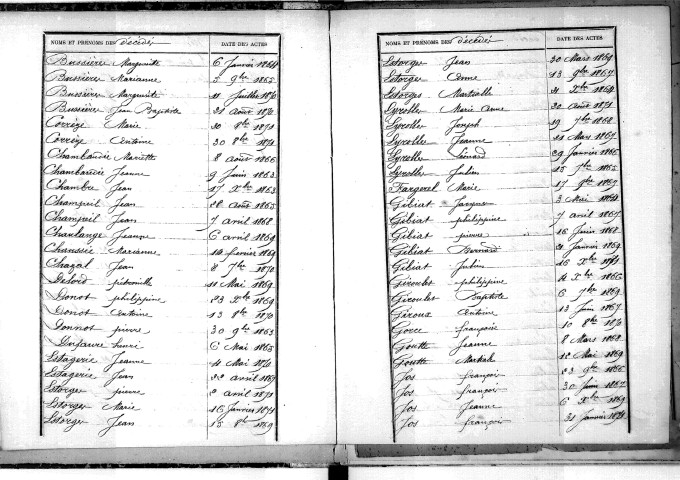 NOMS ET PRÉNOMS DES décédés DATE DES ACTES
Bussière Marguerite 6 Janvier 1864
Bussière Marianne 5 9bre 1865
Bussière Marguerite 11 Juillet 1870
Bussière Jean Baptiste 31 Août 1870
Corrèze Marie 30 8bre 1871
Corrèze Antoine 30 8bre 1871
Chambaudie Mariette 8 août 1866
Chambaudie Jeanne 9 Juin 1863
Chambre Jean 17 Xbre 1863
Champeil Jean 28 août 1865
Champeil Jean 7 avril 1868
Chaulange Jeanne 6 avril 1869
Chaussée Marianne 14 février 1869
Chazal Jean 8 7bre 1870
Délord pétronille 11 Mai 1869
Donot philippine 23 Xbre 1869
Donot Antoine 13 8bre 1870
Donnot pierre 30 9bre 1863
Dufaure henri 6 Mai 1865
Estagerie Jeanne 4 Mai 1870
Estagerie Jean 22 avril 1867
Estorger pierre 2 avril 1871
Estorger Marie 16 Janvier 1871
Estorger Jean 15 8bre 1869
NOMS ET PRÉNOMS DES décédés DATE DES ACTES
Estorger Jean 30 Mars 1869
Estorger Anne 13 9bre 1867
Estorges Martialle 21 Xbre 1869
Eyrolles Marie Anne 20 août 1871
Eyrolles Joseph 19 7bre 1868
Eyrolles Jeanne 21 Mars 1867
Eyrolles Léonard 29 Janvier 1866
Eyrolles Julien 15 7bre 1865
Fargerel Marie 17 9bre 1869
Gibiat Jacques 3 Mai
Gibiat philippine 7 avril 1867
Gibiat pierre 16 Juin 1868
Gibiat Bernard 21 Janvier 1869
Gibiat Julien 16 Xbre 1871
Giroulet philippine Xbre 1866
Giroulet Baptiste 6 7bre 1869
Giroux Antoine 13 Juin 1867
Gorce françoise 10 8bre 1870
Goutte Jeanne 8 Mars 1868
Goutte 12 Mai 1869
Jos françois 23 9bre 1866
Jos françois 30 Juin 1867
Jos Jeanne 6 Xbre 1869
Jos françois 31 Janvier 1871